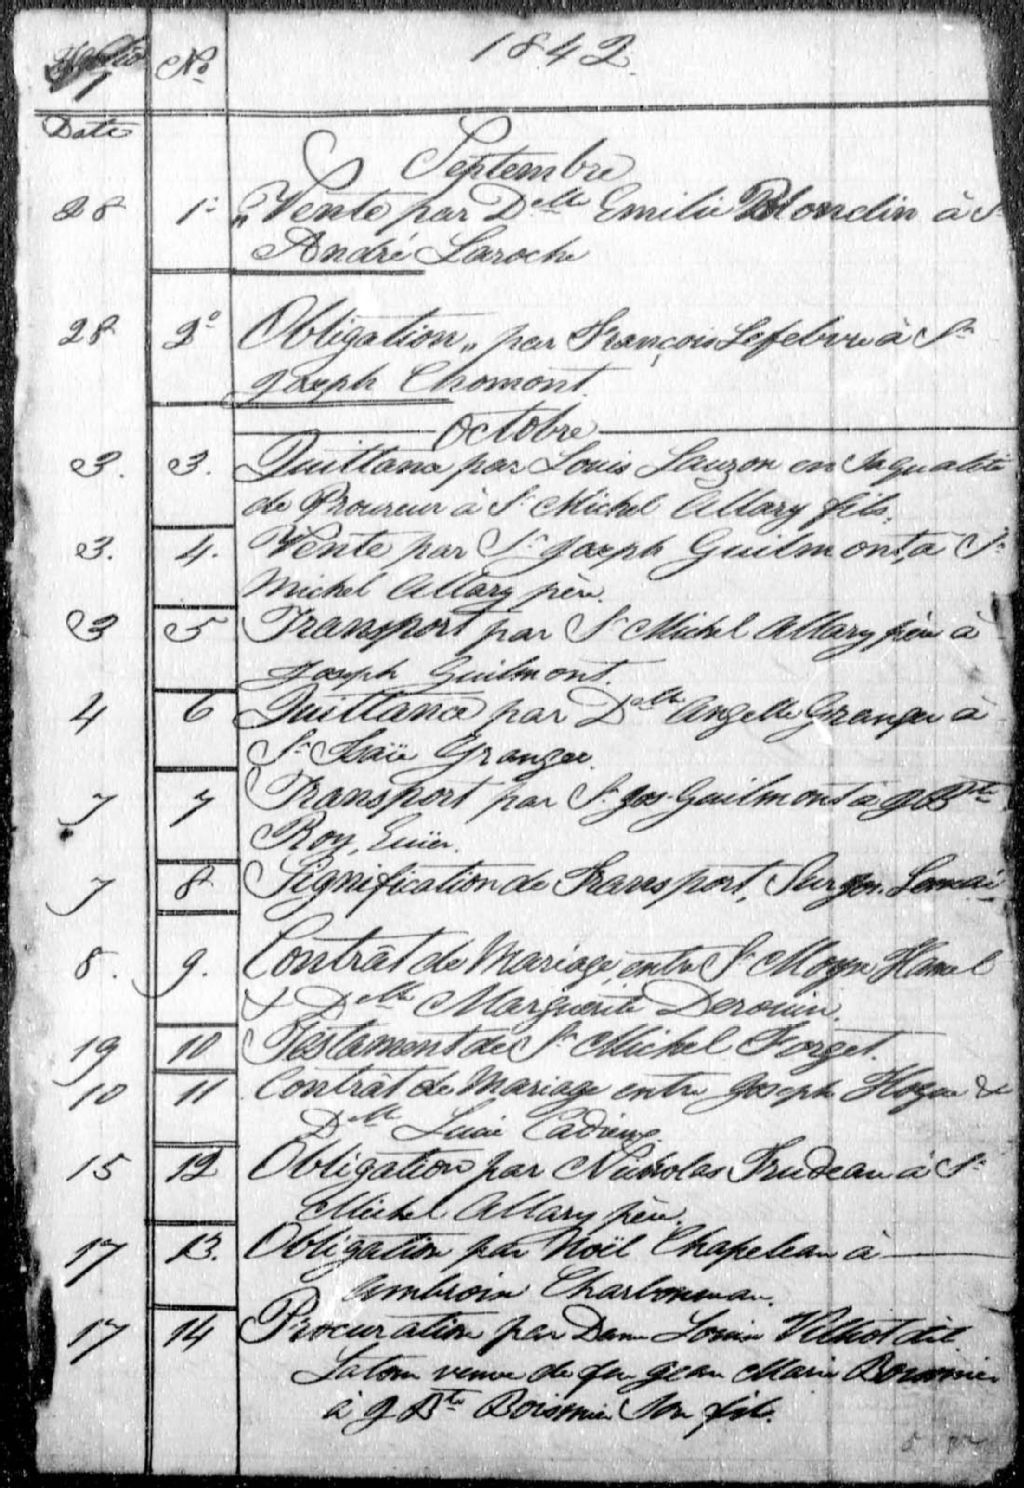 No 1842.
Date
Septembre
28 1° „Vente par Delle Emilie Blondin à Sr
André Laroche
28 2° Obligation„ par François Lefebvre à Sr
Joseph Chomont.
Octobre
3. 3. Quittance par Louis Lauzon en sa qualité
de Procureur à Sr Michel Allary fils.
3. 4. Vente par Sr Joseph Guilmont, à Sr
Michel Allary père.
3 5 Transport par Sr Michel Allary père à
Joseph Guilmont.
4 6 Quittance par Delle Angelle Granger à
Sr Isaïe Granger.
7 7 Transport par Sr Jos. Guilmont à J Bte
Roy, Ecuier.
7 8 Signification de Transport, Sur
8. 9. Contrât de Mariage entre Sr Moyse Hamel
& Delle Marguerite Derouin.
19 10 Testament de Sr Michel Forget.
10 11 Contrât de Mariage entre Joseph &
Delle Lucie Cadieux.
15 12 Obligation par Nicholas Trudeau à Sr
Michel Allary père.
17 13. Obligation par Noël Chapeleau à
Ambroise Charbonneau.
17 14 Procuration par Dame Louise dit
Latour veuve de feu Jean Marie Boismier
à J Bte Boismier Son fils.